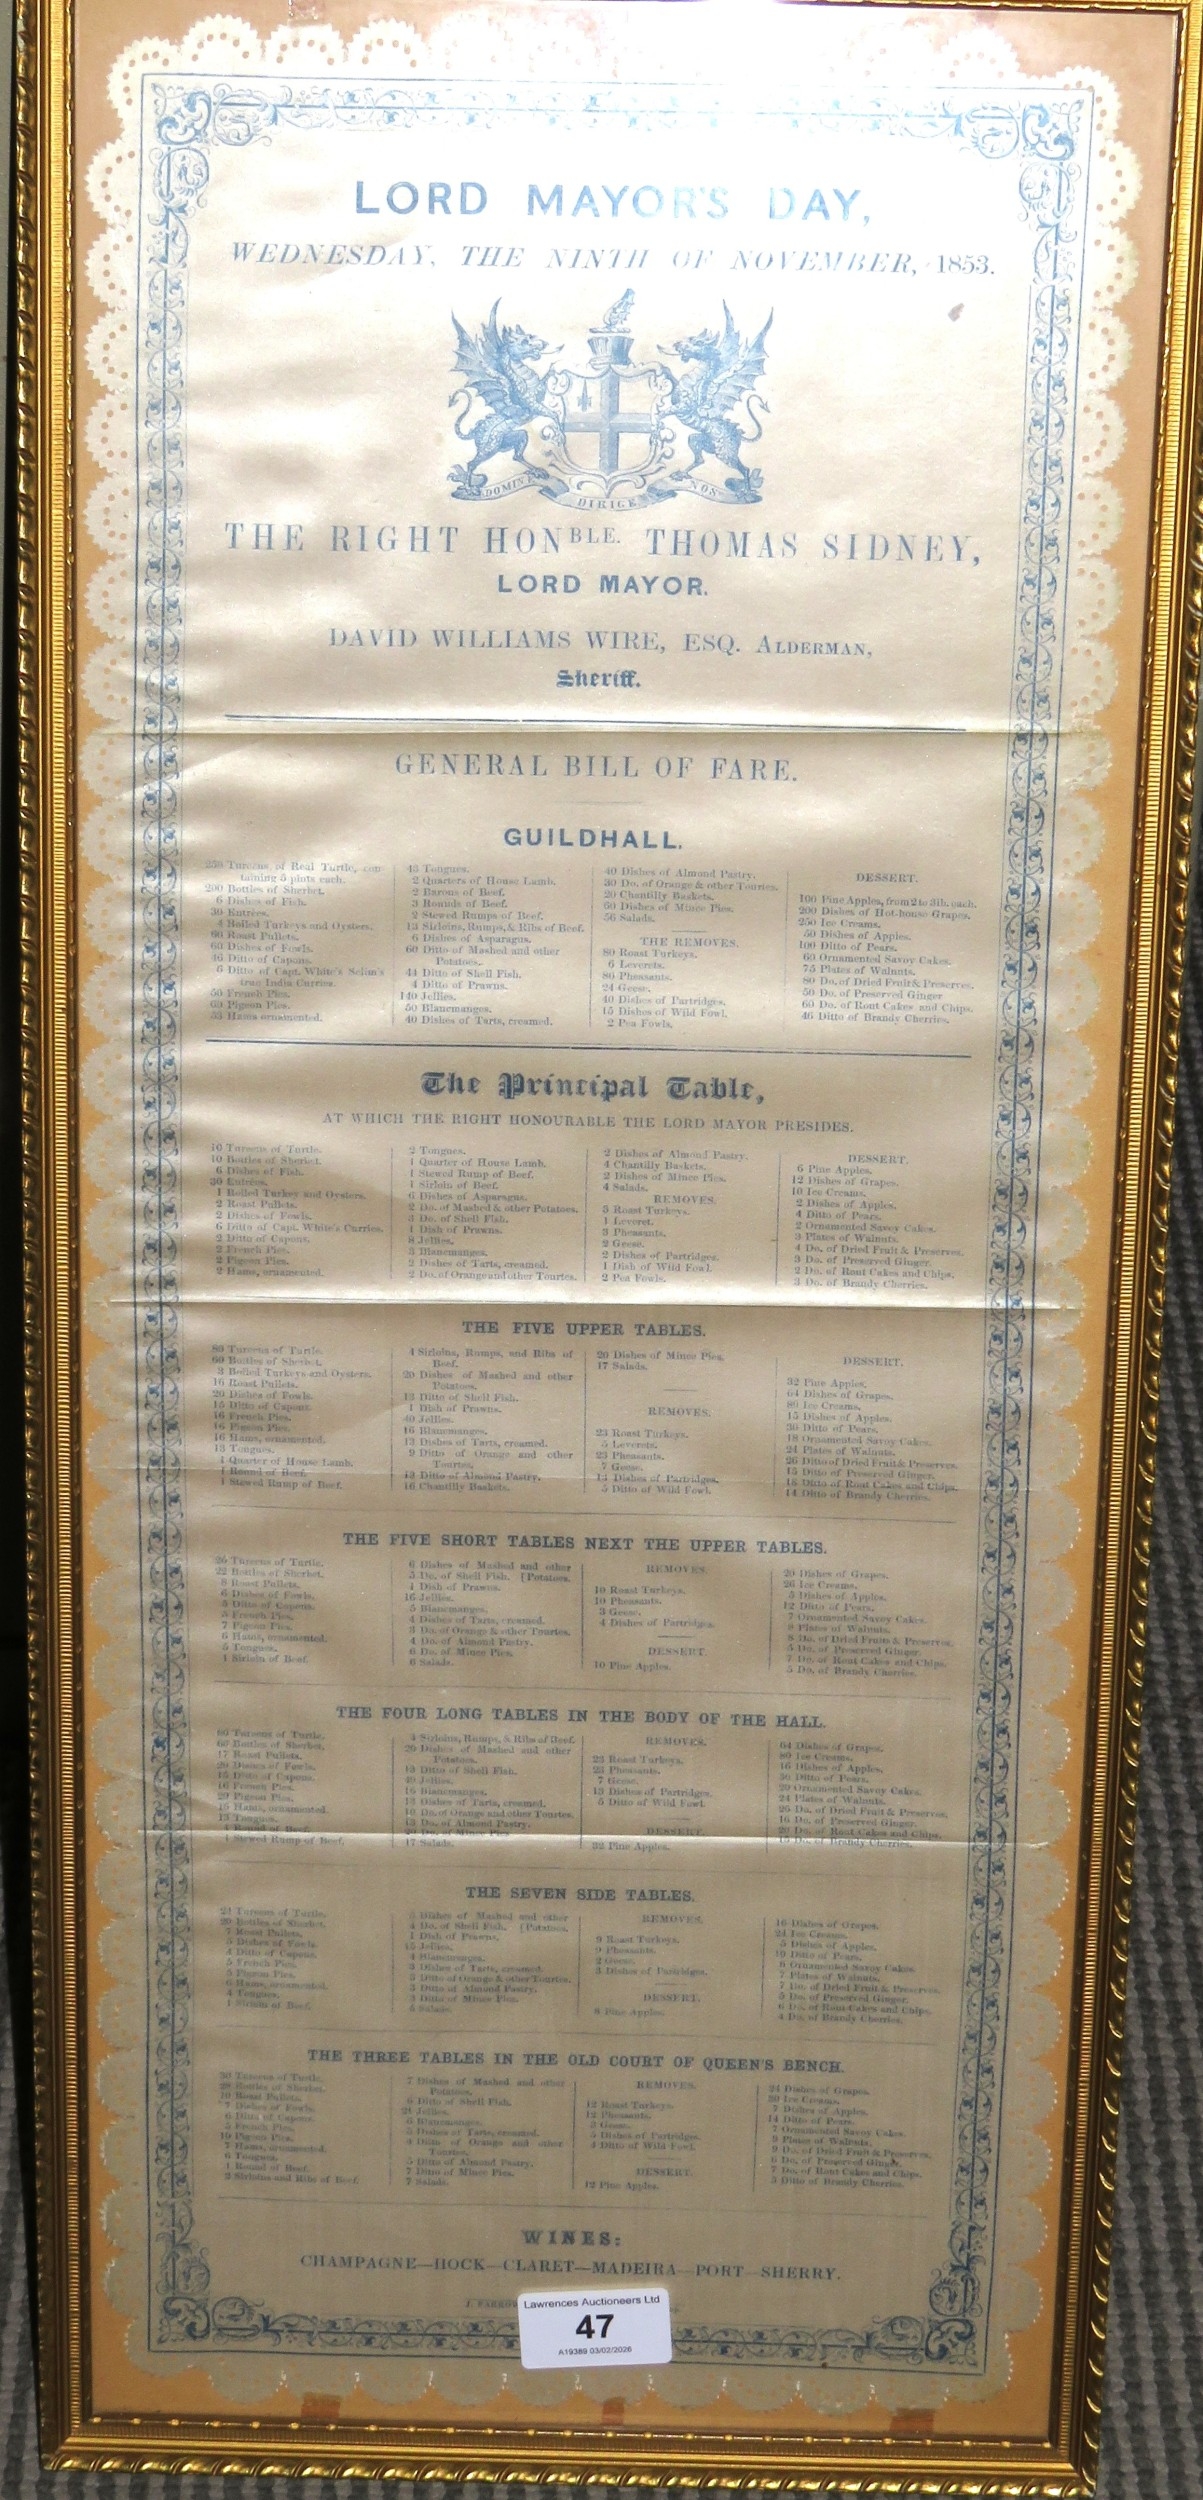 LORD MAYOR'S DAY,
WEDNESDAY, THE NINTH OF NOVEMBER, 1853.
DOMINE
DIRIGE
NOS
THE RIGHT HONBLE. THOMAS SIDNEY,
LORD MAYOR.
DAVID WILLIAMS WIRE, ESQ. ALDERMAN,
Sheriff.
GENERAL BILL OF FARE.
GUILDHALL.
Tureens of Real Turtle, con-
taining 5 pints each.
200 Bottles of Sherbet.
6 Dishes of Fish.
30 Entrées.
4 Boiled Turkeys and Oysters.
60 Roast Pullets.
60 Dishes of Fowls.
46 Ditto of Capons.
6 Ditto of Capt. White's Selim's
true India Curries.
50 French Pies.
60 Pigeon Pies.
53 Hams ornamented.
43 Tongues.
2 Quarters of House Lamb.
2 Barons of Beef.
3 Rounds of Beef.
2 Stewed Rumps of Beef.
13 Sirloins, Rumps, & Ribs of Beef.
6 Dishes of Asparagus.
60 Ditto of Mashed and other
Potatoes.
44 Ditto of Shell Fish.
4 Ditto of Prawns.
140 Jellies.
50 Blancmanges.
40 Dishes of Tarts, creamed.
40 Dishes of Almond Pastry.
30 Do. of Orange & other Tourtes.
20 Chantilly Baskets.
60 Dishes of Mince Pies.
56 Salads.
THE REMOVES.
80 Roast Turkeys.
6 Leverets.
80 Pheasants.
24 Geese.
40 Dishes of Partridges.
15 Dishes of Wild Fowl.
2 Pea Fowls.
DESSERT.
100 Pine Apples, from 2 to 3lb. each.
200 Dishes of Hot-house Grapes.
250 Ice Creams.
50 Dishes of Apples.
100 Ditto of Pears.
60 Ornamented Savoy Cakes.
75 Plates of Walnuts.
80 Do. of Dried Fruit & Preserves.
50 Do. of Preserved Ginger
60 Do. of Rout Cakes and Chips.
46 Ditto of Brandy Cherries.
The Principal Table,
AT WHICH THE RIGHT HONOURABLE THE LORD MAYOR PRESIDES.
10 Tureens of Turtle.
10 Bottles of Sherbet.
6 Dishes of Fish.
30 Entrées.
1 Boiled Turkey and Oysters.
2 Roast Pullets.
2 Dishes of Fowls.
6 Ditto of Capt. White's Curries.
2 Ditto of Capons.
2 French Pies.
2 Pigeon Pies.
2 Hams, ornamented.
2 Tongues.
1 Quarter of House Lamb.
1 Stewed Rump of Beef.
1 Sirloin of Beef.
6 Dishes of Asparagus.
2 Do. of Mashed & other Potatoes.
3 Do. of Shell Fish.
1 Dish of Prawns.
8 Jellies.
3 Blancmanges.
2 Dishes of Tarts, creamed.
2 Do. of Orange and other Tourtes.
2 Dishes of Almond Pastry.
4 Chantilly Baskets.
2 Dishes of Mince Pies.
4 Salads.
REMOVES.
3 Roast Turkeys.
1 Leveret.
3 Pheasants.
2 Geese.
2 Dishes of Partridges.
1 Dish of Wild Fowl.
2 Pea Fowls.
DESSERT.
6 Pine Apples.
12 Dishes of Grapes.
10 Ice Creams.
2 Dishes of Apples.
4 Ditto of Pears.
2 Ornamented Savoy Cakes.
3 Plates of Walnuts.
4 Do. of Dried Fruit & Preserves.
3 Do. of Preserved Ginger.
2 Do. of Rout Cakes and Chips.
3 Do. of Brandy Cherries.
THE FIVE UPPER TABLES.
80 Tureens of Turtle.
60 Bottles of Sherbet.
3 Boiled Turkeys and Oysters.
16 Roast Pullets.
20 Dishes of Fowls.
15 Ditto of Capons.
16 French Pies.
16 Pigeon Pies.
16 Hams, ornamented.
13 Tongues.
1 Quarter of House Lamb.
1 Round of Beef.
1 Stewed Rump of Beef.
4 Sirloins, Rumps, and Ribs of
Beef.
20 Dishes of Mashed and other
Potatoes.
13 Ditto of Shell Fish.
1 Dish of Prawns.
40 Jellies.
16 Blancmanges.
13 Dishes of Tarts, creamed.
9 Ditto of Orange and other
Tourtes.
13 Ditto of Almond Pastry.
16 Chantilly Baskets.
20 Dishes of Mince Pies.
17 Salads.
REMOVES.
23 Roast Turkeys.
5 Leverets.
23 Pheasants.
7 Geese.
13 Dishes of Partridges.
5 Ditto of Wild Fowl.
DESSERT.
32 Pine Apples.
64 Dishes of Grapes.
80 Ice Creams.
15 Dishes of Apples.
30 Ditto of Pears.
18 Ornamented Savoy Cakes.
24 Plates of Walnuts.
26 Ditto of Dried Fruit & Preserves.
15 Ditto of Preserved Ginger.
18 Ditto of Rout Cakes and Chips.
14 Ditto of Brandy Cherries.
THE FIVE SHORT TABLES NEXT THE UPPER TABLES.
26 Tureens of Turtle.
22 Bottles of Sherbet.
8 Roast Pullets.
6 Dishes of Fowls.
5 Ditto of Capons.
5 French Pies.
7 Pigeon Pies.
6 Hams, ornamented.
5 Tongues.
1 Sirloin of Beef.
6 Dishes of Mashed and other
5 Do. of Shell Fish. [Potatoes.
1 Dish of Prawns.
16 Jellies.
5 Blancmanges.
4 Dishes of Tarts, creamed.
3 Do. of Orange & other Tourtes.
4 Do. of Almond Pastry.
6 Do. of Mince Pies.
6 Salads.
REMOVES.
10 Roast Turkeys.
10 Pheasants.
3 Geese.
4 Dishes of Partridges.
DESSERT.
10 Pine Apples.
20 Dishes of Grapes.
26 Ice Creams.
5 Dishes of Apples.
12 Ditto of Pears.
7 Ornamented Savoy Cakes.
8 Plates of Walnuts.
8 Do. of Dried Fruits & Preserves.
5 Do. of Preserved Ginger.
7 Do. of Rout Cakes and Chips.
5 Do. of Brandy Cherries.
THE FOUR LONG TABLES IN THE BODY OF THE HALL.
60 Tureens of Turtle.
60 Bottles of Sherbet.
17 Roast Pullets.
20 Dishes of Fowls.
15 Ditto of Capons.
16 French Pies.
20 Pigeon Pies.
15 Hams, ornamented.
13 Tongues.
1 Round of Beef.
1 Stewed Rump of Beef.
4 Sirloins, Rumps, & Ribs of Beef.
20 Dishes of Mashed and other
Potatoes.
13 Ditto of Shell Fish.
40 Jellies.
16 Blancmanges.
13 Dishes of Tarts, creamed.
10 Do. of Orange and other Tourtes.
13 Do. of Almond Pastry.
20 Do. of Mince Pies.
17 Salads.
REMOVES.
23 Roast Turkeys.
23 Pheasants.
7 Geese.
13 Dishes of Partridges.
5 Ditto of Wild Fowl.
DESSERT.
32 Pine Apples.
64 Dishes of Grapes.
80 Ice Creams.
16 Dishes of Apples.
30 Ditto of Pears.
20 Ornamented Savoy Cakes.
24 Plates of Walnuts.
26 Do. of Dried Fruit & Preserves.
16 Do. of Preserved Ginger.
20 Do. of Rout Cakes and Chips.
15 Do. of Brandy Cherries.
THE SEVEN SIDE TABLES.
24 Tureens of Turtle.
20 Bottles of Sherbet.
7 Roast Pullets.
5 Dishes of Fowls.
4 Ditto of Capons.
5 French Pies.
5 Pigeon Pies.
6 Hams, ornamented.
4 Tongues.
1 Sirloin of Beef.
5 Dishes of Mashed and other
4 Do. of Shell Fish. [Potatoes.
1 Dish of Prawns.
15 Jellies.
4 Blancmanges.
3 Dishes of Tarts, creamed.
3 Ditto of Orange & other Tourtes.
3 Ditto of Almond Pastry.
3 Ditto of Mince Pies.
5 Salads.
REMOVES.
9 Roast Turkeys.
9 Pheasants.
2 Geese.
3 Dishes of Partridges.
DESSERT.
8 Pine Apples.
16 Dishes of Grapes.
24 Ice Creams.
5 Dishes of Apples.
10 Ditto of Pears.
6 Ornamented Savoy Cakes.
7 Plates of Walnuts.
7 Do. of Dried Fruit & Preserves.
5 Do. of Preserved Ginger.
6 Do. of Rout Cakes and Chips.
4 Do. of Brandy Cherries.
THE THREE TABLES IN THE OLD COURT OF QUEEN'S BENCH.
30 Tureens of Turtle.
28 Bottles of Sherbet.
10 Roast Pullets.
7 Dishes of Fowls.
6 Ditto of Capons.
5 French Pies.
10 Pigeon Pies.
7 Hams, ornamented.
6 Tongues.
1 Round of Beef.
2 Sirloins and Ribs of Beef.
7 Dishes of Mashed and other
Potatoes.
6 Ditto of Shell Fish.
21 Jellies.
6 Blancmanges.
5 Dishes of Tarts, creamed.
4 Ditto of Orange and other
Tourtes.
5 Ditto of Almond Pastry.
7 Ditto of Mince Pies.
7 Salads.
REMOVES.
12 Roast Turkeys.
12 Pheasants.
3 Geese.
5 Dishes of Partridges.
4 Ditto of Wild Fowl.
DESSERT.
12 Pine Apples.
24 Dishes of Grapes.
30 Ice Creams.
7 Dishes of Apples.
14 Ditto of Pears.
7 Ornamented Savoy Cakes.
9 Plates of Walnuts.
9 Do. of Dried Fruit & Preserves.
6 Do. of Preserved Ginger.
7 Do. of Rout Cakes and Chips.
5 Ditto of Brandy Cherries.
WINES:
CHAMPAGNE—HOCK—CLARET—MADEIRA—PORT—SHERRY.
Lawrences Auctioneers Ltd
47
A19389 03/02/2026